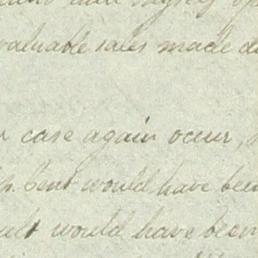 and myself
valuable sales made d
case again occur,
Cent would have been
would have been